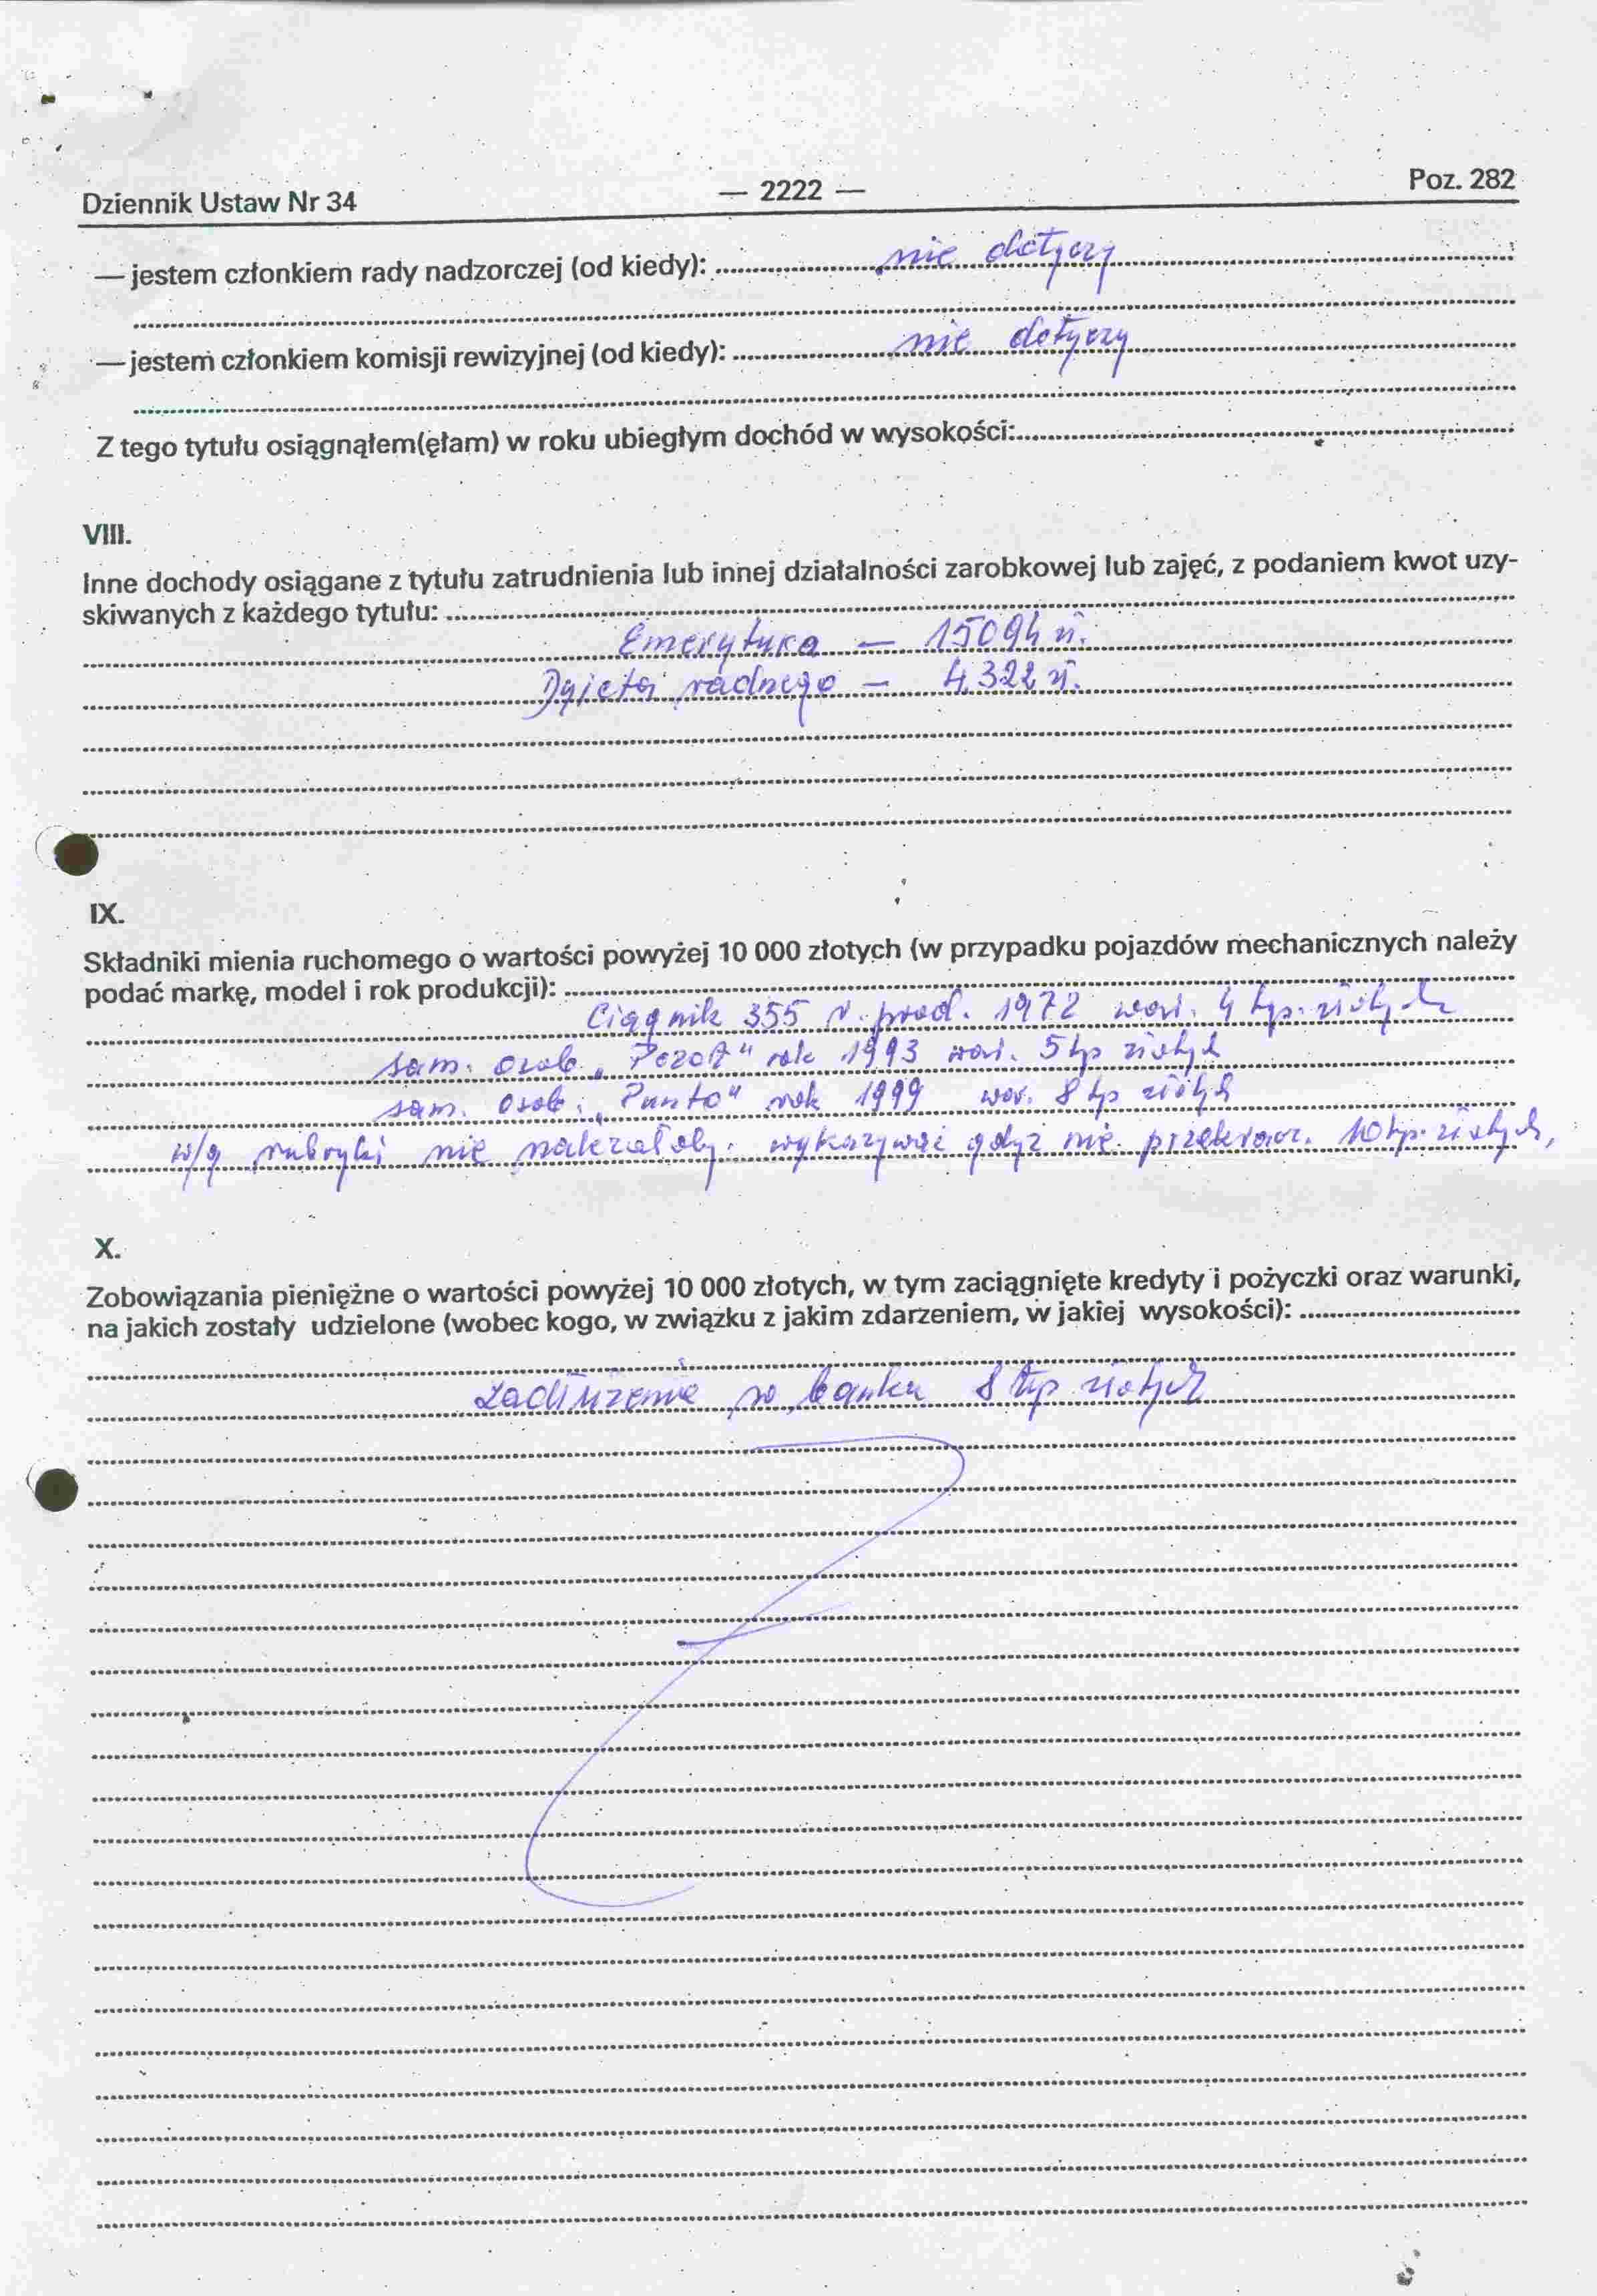 Dziennik Ustaw Nr 34 — 2222 — Poz. 282
— jestem członkiem rady nadzorczej (od kiedy): nie dotyczy
— jestem członkiem komisji rewizyjnej (od kiedy): nie dotyczy
Z tego tytułu osiągnąłem(ęłam) w roku ubiegłym dochód w wysokości:
VIII.
Inne dochody osiągane z tytułu zatrudnienia lub innej działalności zarobkowej lub zajęć, z podaniem kwot uzy-
skiwanych z każdego tytułu:
Emerytura — 15094 zł.
Dyieta radnego — 4.322 zł.
IX.
Składniki mienia ruchomego o wartości powyżej 10 000 złotych (w przypadku pojazdów mechanicznych należy
podać markę, model i rok produkcji):
Ciągnik 355 r. prod. 1972 wart. 4 tys. złotych
sam. osob. „Pezot" rok 1993 wart. 5 tys złotych
sam. osob. „Punto" rok 1999 war. 8 tys złotych
w/g rubryki nie należałoby wykazywać gdyż nie przekracz. 10 tys. złotych,
X.
Zobowiązania pieniężne o wartości powyżej 10 000 złotych, w tym zaciągnięte kredyty i pożyczki oraz warunki,
na jakich zostały udzielone (wobec kogo, w związku z jakim zdarzeniem, w jakiej wysokości):
zadłużenie w banku 8 tys złotych